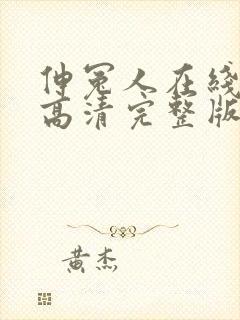 伸冤人在线
高清完整版
黄杰